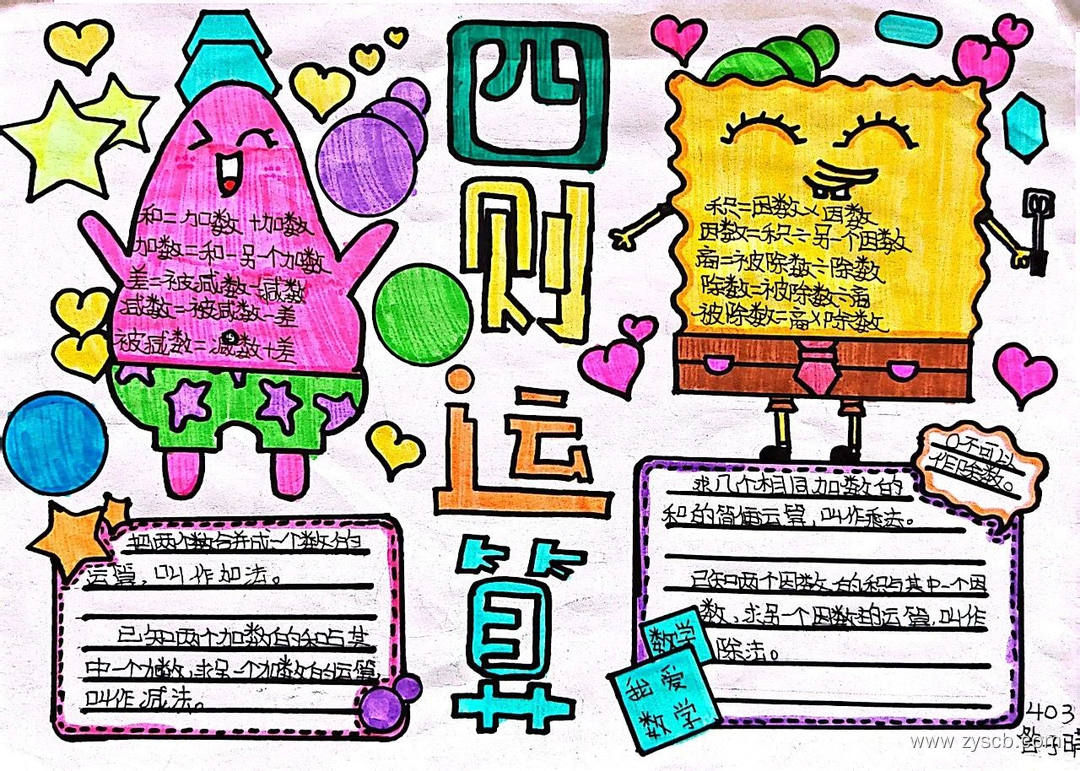 四则运算
和=加数+加数
加数=和-另一个加数
差=被减数-减数
减数=被减数-差
被减数=减数+差
积=因数×因数
因数=积÷另一个因数
商=被除数÷除数
除数=被除数÷商
被除数=商×除数
0不可以
作除数。
把两个数合并成一个数的
运算,叫作加法。
已知两个加数的和与其
中一个加数,求另一个加数的运算
叫作减法。
求几个相同加数的
和的简便运算,叫作乘法。
已知两个因数的积与其中一个因
数,求另一个因数的运算,叫作
除法。
数学
我爱
数学
403
www.zyscb.com